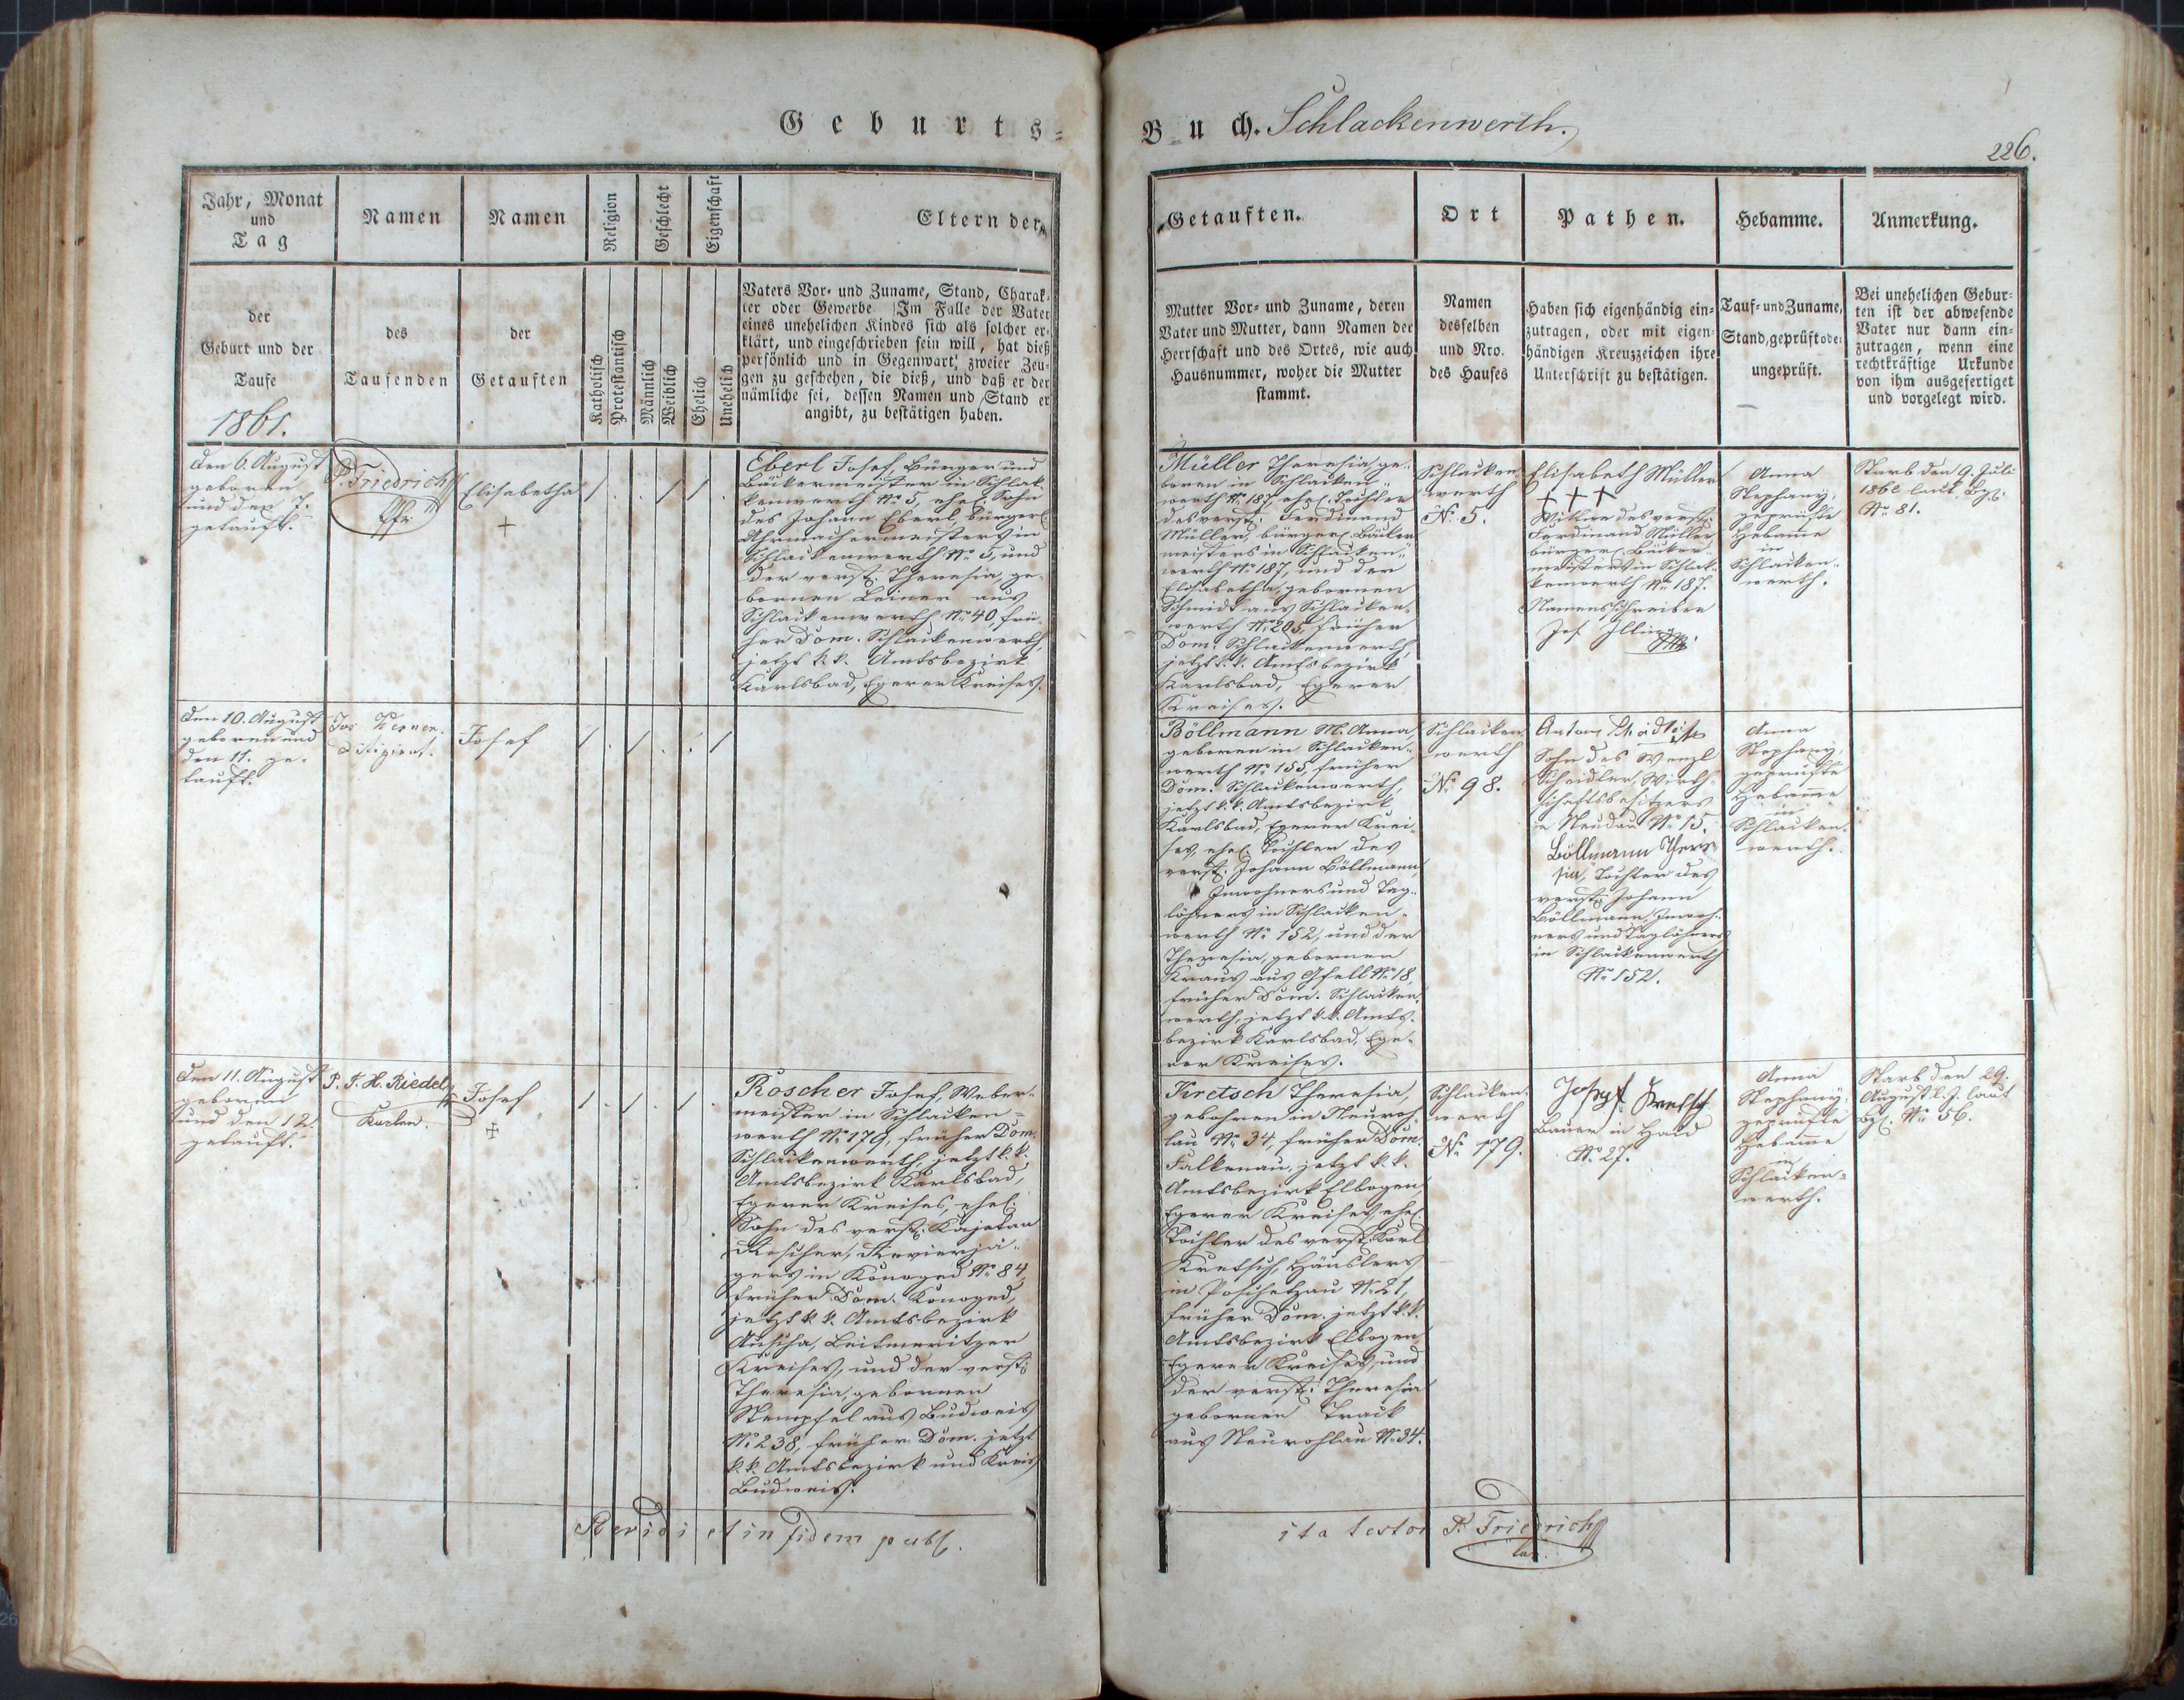 Geburts=
Buch. Schlackenwerth.
226.
Jahr, Monat
und
Tag
der
Geburt und der
Taufe
1861.
Namen
des
Taufenden
Namen
der
Getauften
Religion
Katholisch
Protestantisch
Geschlecht
Männlich
Weiblich
Eigenschaft
Ehelich
Unehelich
Eltern der
Vaters Vor- und Zuname, Stand, Charak-
ter oder Gewerbe Im Falle der Vater
eines unehelichen Kindes sich als solcher er-
klärt, und eingeschrieben sein will, hat dieß
persönlich und in Gegenwart zweier Zeu-
gen zu geschehen, die dieß, und daß er der
nämliche sei, dessen Namen und Stand er
angibt, zu bestätigen haben.
Getauften.
Mutter Vor- und Zuname, deren
Vater und Mutter, dann Namen der
Herrschaft und des Ortes, wie auch
Hausnummer, woher die Mutter
stammt.
Ort
Namen
desselben
und Nro.
des Hauses
Pathen.
Haben sich eigenhändig ein-
zutragen, oder mit eigen-
händigen Kreuzzeichen ihre
Unterschrift zu bestätigen.
Hebamme.
Tauf- und Zuname,
Stand, geprüft oder
ungeprüft.
Anmerkung.
Bei unehelichen Gebur-
ten ist der abwesende
Vater nur dann ein-
zutragen, wenn eine
rechtkräftige Urkunde
von ihm ausgefertiget
und vorgelegt wird.
Den 6. August
geboren
und den 7.
getauft.
P. Friedrich
Elisabetha
+
/ . . / / .
Eberl Josef, Bürger und
Bäckermeister in Schlak-
kenwerth No 5, ehel. Sohn
des Johann Eberl bürgerl.
Uhrmachermeisters in
Schlackenwerth No 5, und
der verst. Theresia, ge-
bornen Leiner aus
Schlackenwerth No 40, frü-
her Dom. Schlackenwerth,
jetzt k. k. Amtsbezirk
Karlsbad, Egerer Kreises.
Müller Theresia, ge-
boren in Schlacken-
werth No 187, ehel. Tochter
des verst. Ferdinand
Müller, bürgerl. Bäcker-
meisters in Schlacken-
werth No 187, und der
Elisabetha, gebornen
Schmidt aus Schlacken-
werth No 205, früher
Dom. Schlackenwerth,
jetzt k. k. Amtsbezirk
Karlsbad, Egerer
Kreises.
Schlacken-
werth
No 5.
Elisabeth Müller
+ + +
Witwe des verst.
Ferdinand Müller
bürgerl. Bäcker-
meisters in Schlak-
kenwerth No 187.
Namensschreiber
Jos. Illing
Anna
Stephany,
geprüfte
Hebame
in
Schlacken-
werth.
Starb den 9. Juli
1862 laut
No 81.
Den 10. August
geboren und
den 11. ge-
tauft.
Jos Werner
Josef
/ . / . . /
Böllmann M. Anna
geboren in Schlacken-
werth No 155, früher
Dom. Schlackenwerth,
jetzt k. k. Amtsbezirk
Karlsbad, Egerer Krei-
ses, ehel. Tochter des
verst. Johann Böllmann,
Inwohners und Tag-
löhners in Schlacken-
werth No 152, und der
Theresia, gebornen
Kraus aus Gfell No 18,
früher Dom. Schlacken-
werth, jetzt k. k. Amts-
bezirk Karlsbad, Ege-
rer Kreises.
Schlacken-
werth
No 98.
Anton
Sohn des Wenzl
Scheidler, Wirth-
schaftsbesitzers
in Neudau No 15.
Böllmann There-
sia, Tochter des
verst. Johann
Böllmann, Inwoh-
ners und Taglöhners
in Schlackenwerth
No 152.
Anna
Stephany,
geprüfte
Hebame
in
Schlacken-
werth.
Den 11. August
geboren
und den 12.
getauft.
P. F. H. Riedel
Kaplan.
Josef
+
/ . / . / .
Roscher Josef, Weber-
meister in Schlacken-
werth No 179, früher Dom.
Schlackenwerth, jetzt k. k.
Amtsbezirk Karlsbad,
Egerer Kreises, ehel.
Sohn des verst. Kajetan
Roscher, Revierjä-
gers in Konoged No 84,
früher Dom. Konoged,
jetzt k. k. Amtsbezirk
Auscha, Leitmeritzer
Kreises, und der verst.
Theresia, gebornen
Stempfel aus Budweis
No 238, früher Dom. jetzt
k. k. Amtsbezirk und Kreis
Budweis.
Kretsch Theresia,
gebohren in Neuroh-
lau No 34, früher Dom.
Falkenau, jetzt k. k.
Amtsbezirk Elbogen,
Egerer Kreises, ehel.
Tochter des verst. Karl
Kretsch, Häuslers
in Poschetzau No 21,
früher Dom. jetzt k. k.
Amtsbezirk Elbogen,
Egerer Kreises, und
der verst. Theresia
gebornen Track
aus Neurohlau No 34.
Schlacken-
werth
No 179.
Josef Kretsch
Bauer in Haid
No 27.
Anna
Stephany,
geprüfte
Hebame
in
Schlacken-
werth.
Starb den 29.
August l. J. laut
No 56.
Revidi et in fidem publ.
ita testor P. Friedrich